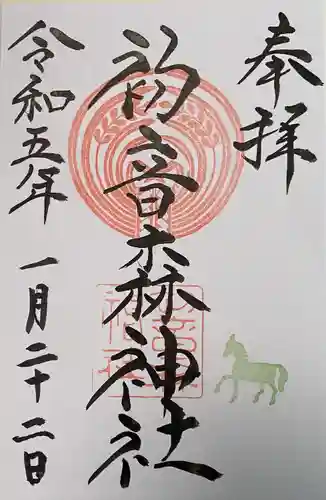 奉拝
初音森神社
令和五年
一月二十二日